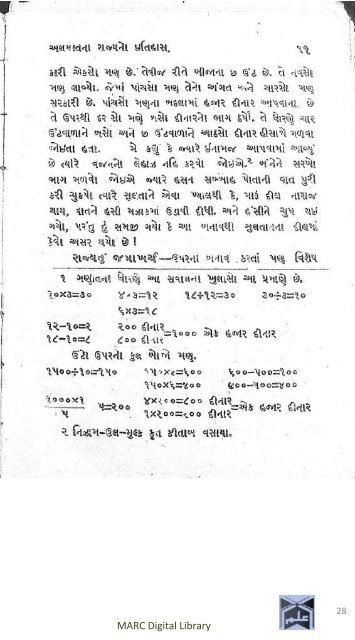 અલમાતના રાજ્યનો ઇતિહાસ. ૧૧
કારી એકસો મણ છે. તેવીજ રીતે બીજાના ૭ ઉંટ છે. તે નવસો
મણ લાવ્યો. જેમાં પાંચસો મણ તેના અંગત અને ચારસો મણ
સરકારી છે. પાંચસો મણના બદલામાં હજાર દીનાર આપવાના છે
તે ઉપરથી દર સો મણે બસો દીનારનો ભાગ ઠર્યો. તે ધોરણે ચાર
ઉંટવાળાને બસો અને ૭ ઉંટવાળાને આઠસો દીનાર હીસાબે મળવા
જોઇતા હતા. મેં કહ્યું કે જ્યારે ઇનામજ આપવામાં આવ્યું
છે ત્યારે વજનનો લેહાજ નહિ કરવો જોઇએ. બંનેને સરખો
ભાગ મળવો જોઇએ જ્યારે હસન સબ્બાહ પોતાની વાત પુરી
કરી ચુક્યો ત્યારે સુલતાને એવા ખ્યાલથી કે, મારૂં દીલ નારાજ
થાય, વાતને હસી મજાકમાં ઉડાવી દીધી. અને હું હસીને ચુપ થઇ
ગયો, પરંતુ હું સમજી ગયો કે આ બનાવથી સુલતાનના દીલમાં
કેવો અસર થયો છે !
રાજ્યનું જમાખર્ચ—ઉપરના બનાવ કરતાં પણ વિશેષ
૧ ગણીતના ધોરણે આ સવાલનો ખુલાસો આ પ્રમાણે છે.
૧૦×૩=૩૦ ૪×૩=૧૨ ૧૮+૧૨=૩૦ ૩૦÷૩=૧૦
૬×૩=૧૮
૧૨–૧૦=૨ ૨૦૦ દીનાર
૧૮–૧૦=૮ ૮૦૦ દીનાર =૧૦૦૦ એક હજાર દીનાર
ઉંટો ઉપરનો કુલ બોજો મણ.
૧૫૦૦÷૧૦=૧૫૦ ૧૫૦×૪=૬૦૦ ૬૦૦–૫૦૦=૧૦૦
૧૫૦×૬=૯૦૦ ૯૦૦–૫૦૦=૪૦૦
૧૦૦૦×૧ ૪×૨૦૦=૮૦૦ દીનાર
૫ ૫=૨૦૦ ૧×૨૦૦=૨૦૦ દીનાર =એક હજાર દીનાર
૨ નિઝામ–ઉલ–મુલ્ક કૃત કીતાબ વસાયા.
28
MARC Digital Library